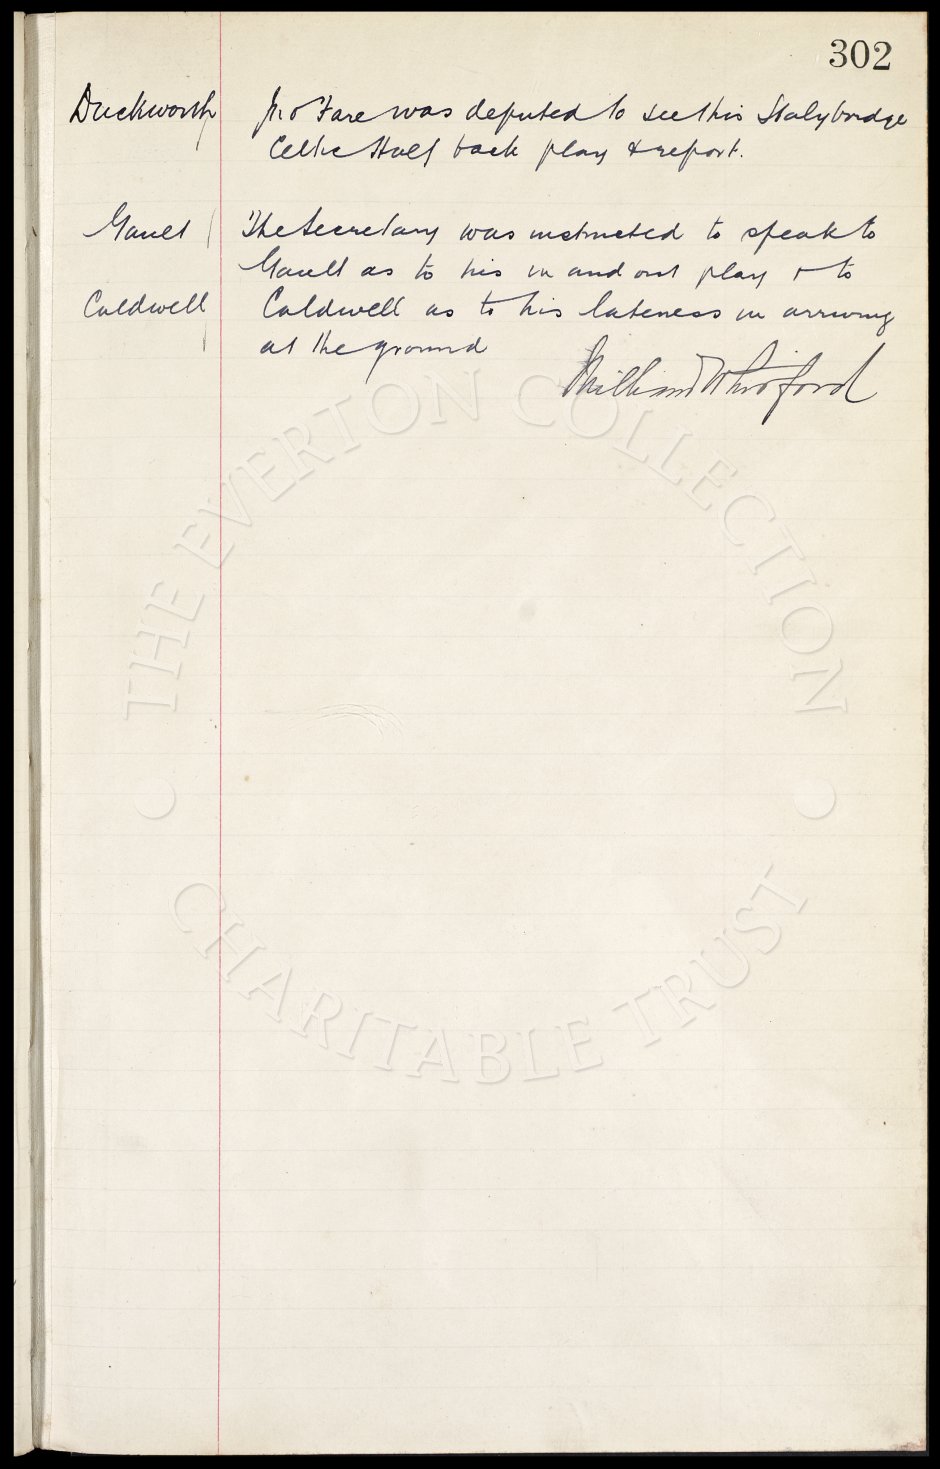 302
Duckworth Mr Fare was deputed to see this Stalybridge
Celtic Half back play & report.
Gault The Secretary was instructed to speak to
Gault as to his in and out play & to
Caldwell Caldwell as to his lateness in arriving
at the ground
William Whitford
THE EVERTON COLLECTION
CHARITABLE TRUST